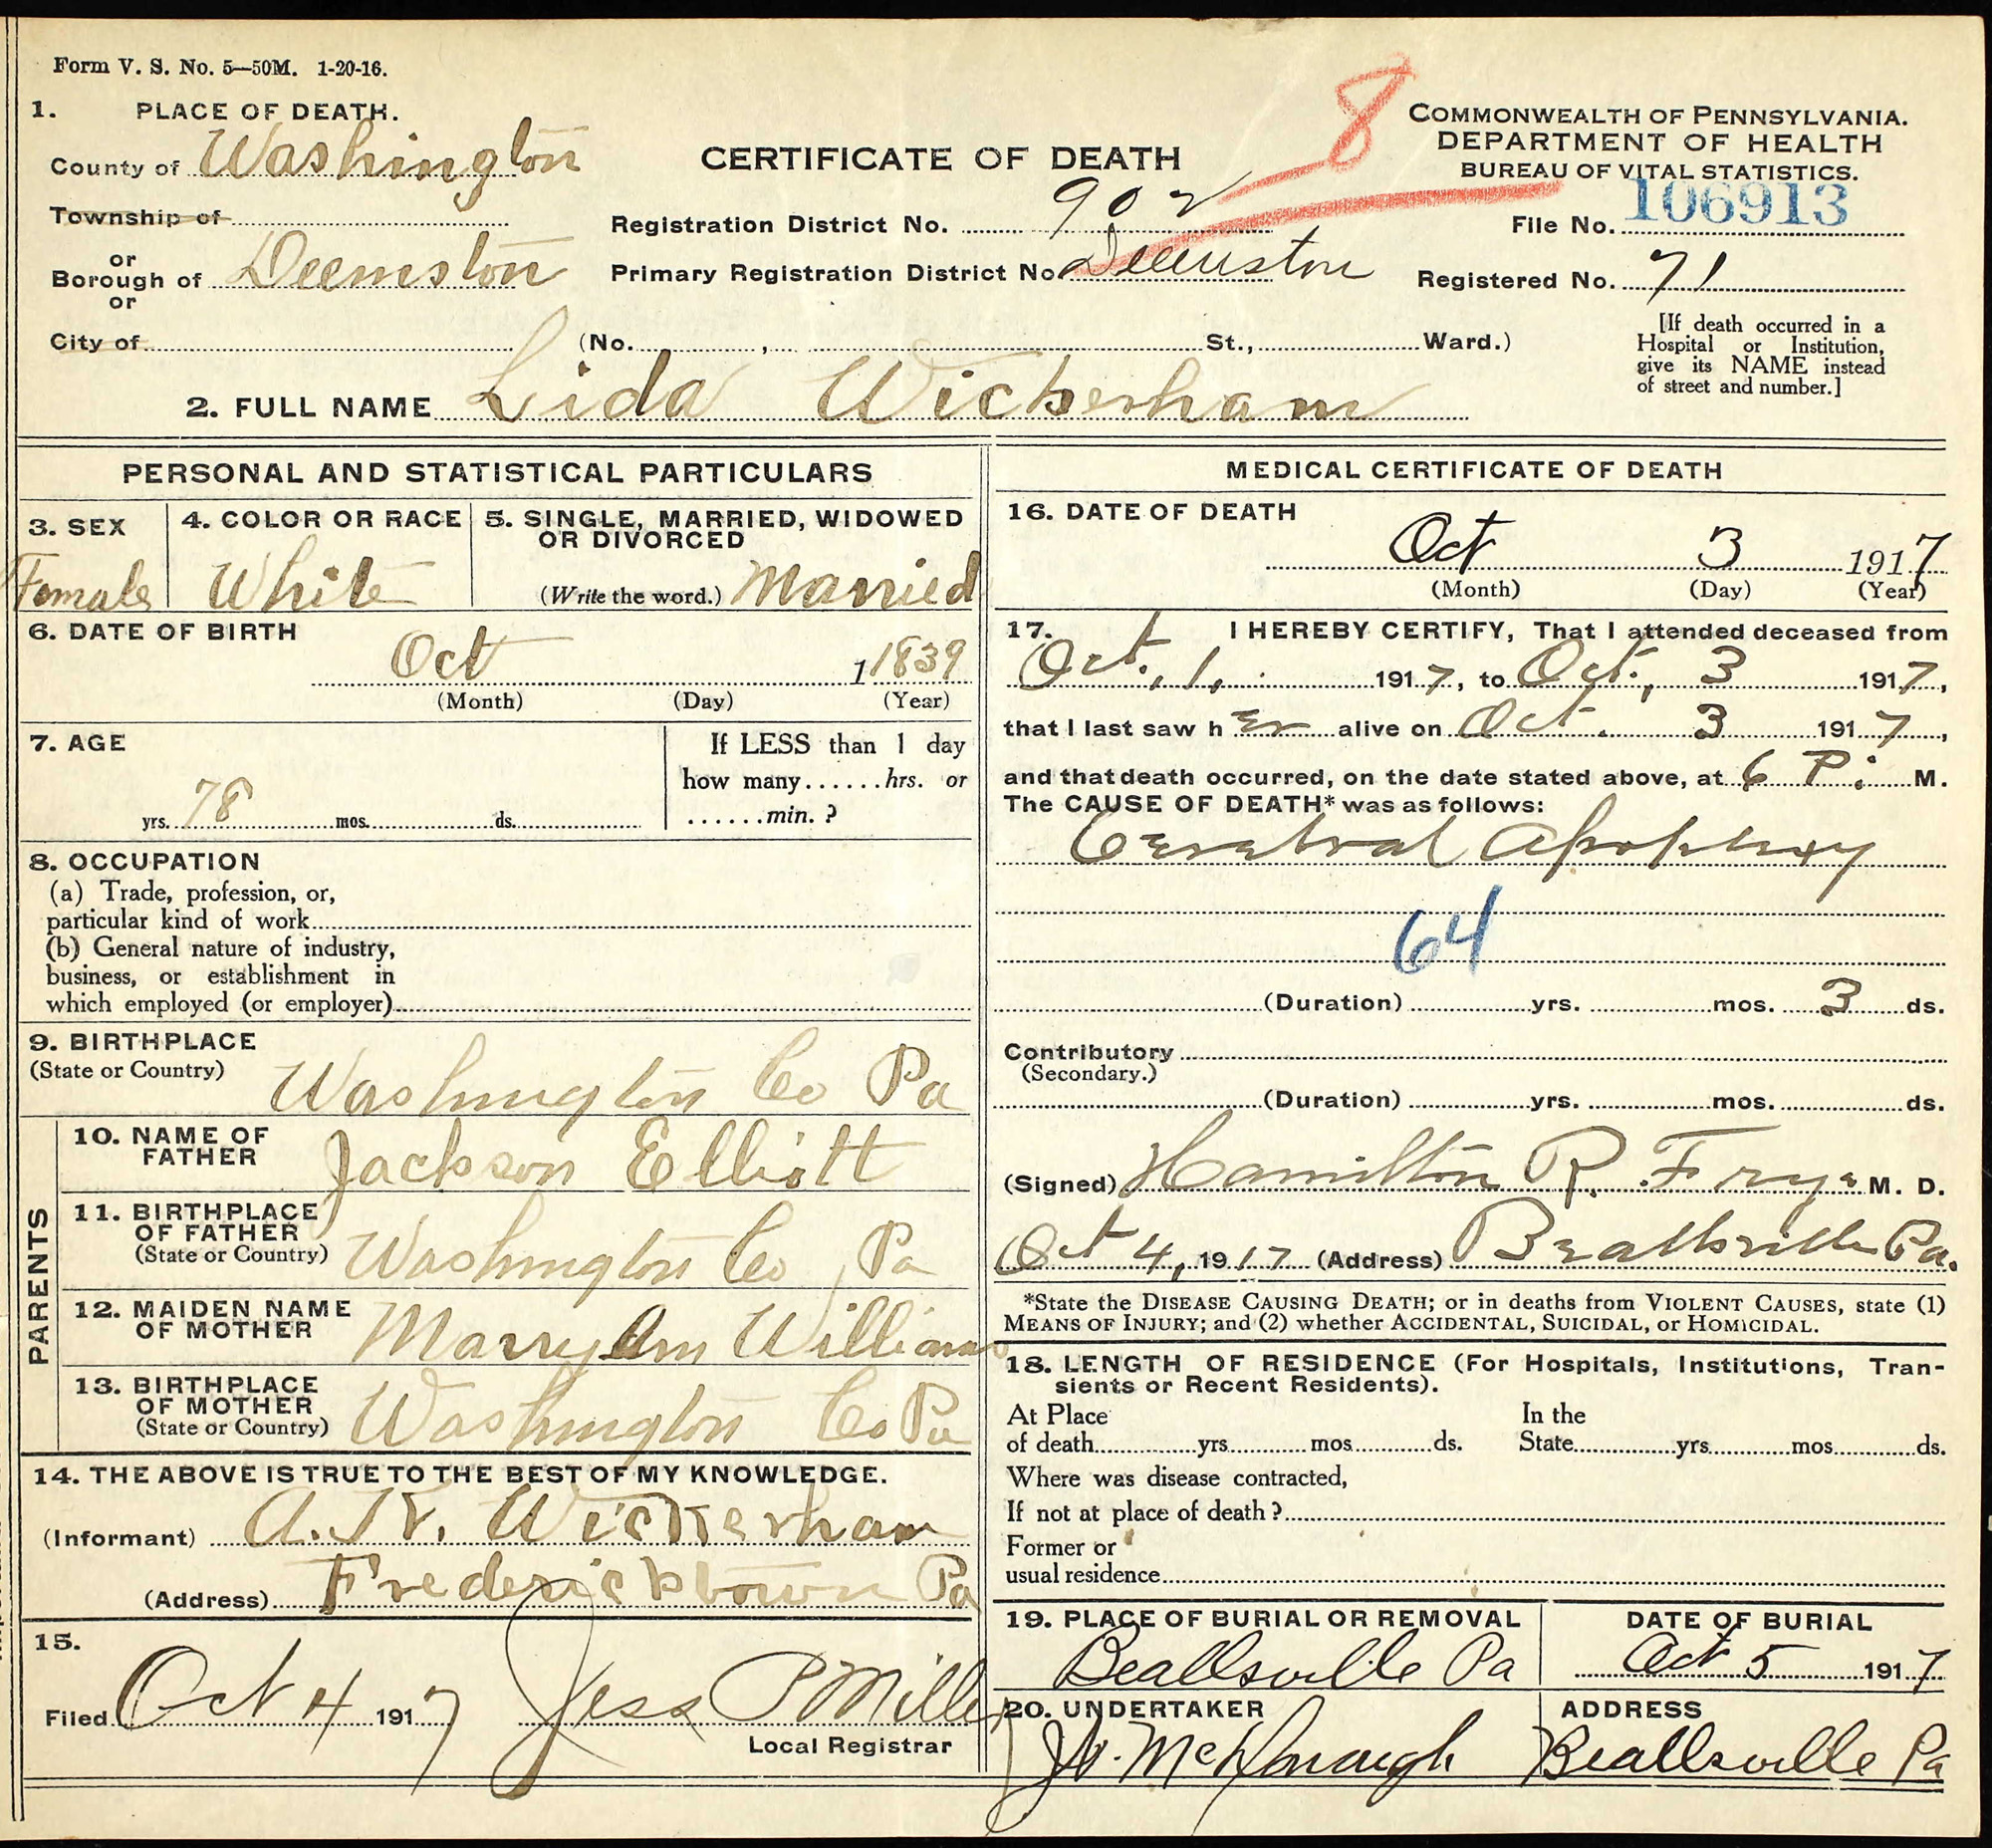 Form V. S. No. 5—50M. 1-20-16.
8
1. PLACE OF DEATH.
County of Washington
Township of
or
Borough of Deemston
or
City of (No. , St., Ward.)
CERTIFICATE OF DEATH
Registration District No. 902
Primary Registration District No. Deemston
COMMONWEALTH OF PENNSYLVANIA.
DEPARTMENT OF HEALTH
BUREAU OF VITAL STATISTICS.
File No. 106913
Registered No. 71
[If death occurred in a
Hospital or Institution,
give its NAME instead
of street and number.]
2. FULL NAME Lida Wickerham
PERSONAL AND STATISTICAL PARTICULARS
3. SEX
Female
4. COLOR OR RACE
White
5. SINGLE, MARRIED, WIDOWED
OR DIVORCED
(Write the word.) Married
6. DATE OF BIRTH
Oct 1 1839
(Month) (Day) (Year)
7. AGE
78 yrs. mos. ds.
If LESS than 1 day
how many......hrs. or
......min. ?
8. OCCUPATION
(a) Trade, profession, or,
particular kind of work
(b) General nature of industry,
business, or establishment in
which employed (or employer)
9. BIRTHPLACE
(State or Country)
Washington Co Pa
PARENTS
10. NAME OF
FATHER
Jackson Elliott
11. BIRTHPLACE
OF FATHER
(State or Country)
Washington Co, Pa
12. MAIDEN NAME
OF MOTHER
Marry Ann Williams
13. BIRTHPLACE
OF MOTHER
(State or Country)
Washington Co Pa
14. THE ABOVE IS TRUE TO THE BEST OF MY KNOWLEDGE.
(Informant) Wickerham
(Address) Fredericktown Pa
15.
Filed Oct 4 1917 Jess P Miller
Local Registrar
MEDICAL CERTIFICATE OF DEATH
16. DATE OF DEATH
Oct 3 1917
(Month) (Day) (Year)
17. I HEREBY CERTIFY, That I attended deceased from
Oct. 1, 1917, to Oct., 3 1917,
that I last saw her alive on Oct. 3 1917,
and that death occurred, on the date stated above, at 6 P. M.
The CAUSE OF DEATH* was as follows:
Cerebral Apoplexy
64
(Duration) yrs. mos. 3 ds.
Contributory
(Secondary.)
(Duration) yrs. mos. ds.
(Signed) Hamilton R. Frye M. D.
Oct 4, 1917 (Address) Beallsville Pa.
*State the DISEASE CAUSING DEATH; or in deaths from VIOLENT CAUSES, state (1)
MEANS OF INJURY; and (2) whether ACCIDENTAL, SUICIDAL, or HOMICIDAL.
18. LENGTH OF RESIDENCE (For Hospitals, Institutions, Tran-
sients or Recent Residents).
At Place
of death yrs mos ds.
In the
State yrs mos ds.
Where was disease contracted,
If not at place of death?
Former or
usual residence
19. PLACE OF BURIAL OR REMOVAL
Beallsville Pa
DATE OF BURIAL
Oct 5 1917
20. UNDERTAKER
McDonough
ADDRESS
Beallsville Pa